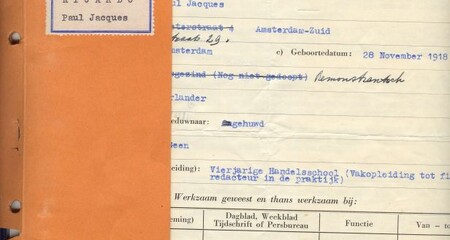 RICARDO
Paul Jacques
ul Jacques
Amsterdam-Zuid
29.
msterdam c) Geboortedatum: 28 November 1918
(Nog niet gedoopt) Remonstrantsch
rlander
eduwnaar: gehuwd
Geen
leiding): Vierjarige Handelsschool (Vakopleiding tot fi
redacteur in de praktijk)
Werkzaam geweest en thans werkzaam bij:
eming) Dagblad, Weekblad Functie Van – to
Tijdschrift of Persbureau